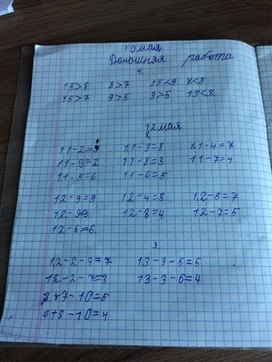 10 мая
Домашняя работа
4.
13>8 8>7 13<9 7<8
15>7 9>5 8>5 13<8
12 мая
11-2=9 11-3=8 11-4=7
11-9=2 11-8=3 11-7=4
11-5=6 11-6=5
12-3=9 12-4=8 12-5=7
12-9 12-8=4 12-7=5
12-6=6
3
12-2-3=7 13-3-5=5
12-2-7=3 13-3-6=4
+7-10=5
6+8-10=4